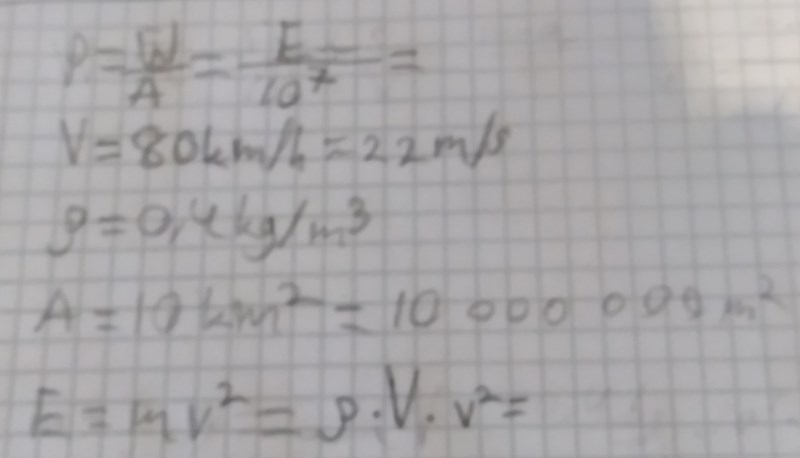 P = W/A = E/10^7 =
V = 80 km/h = 22 m/s
ρ = 0,4 kg/m³
A = 10 km² = 10 000 000 m²
E = mv² = ρ · V · v² =